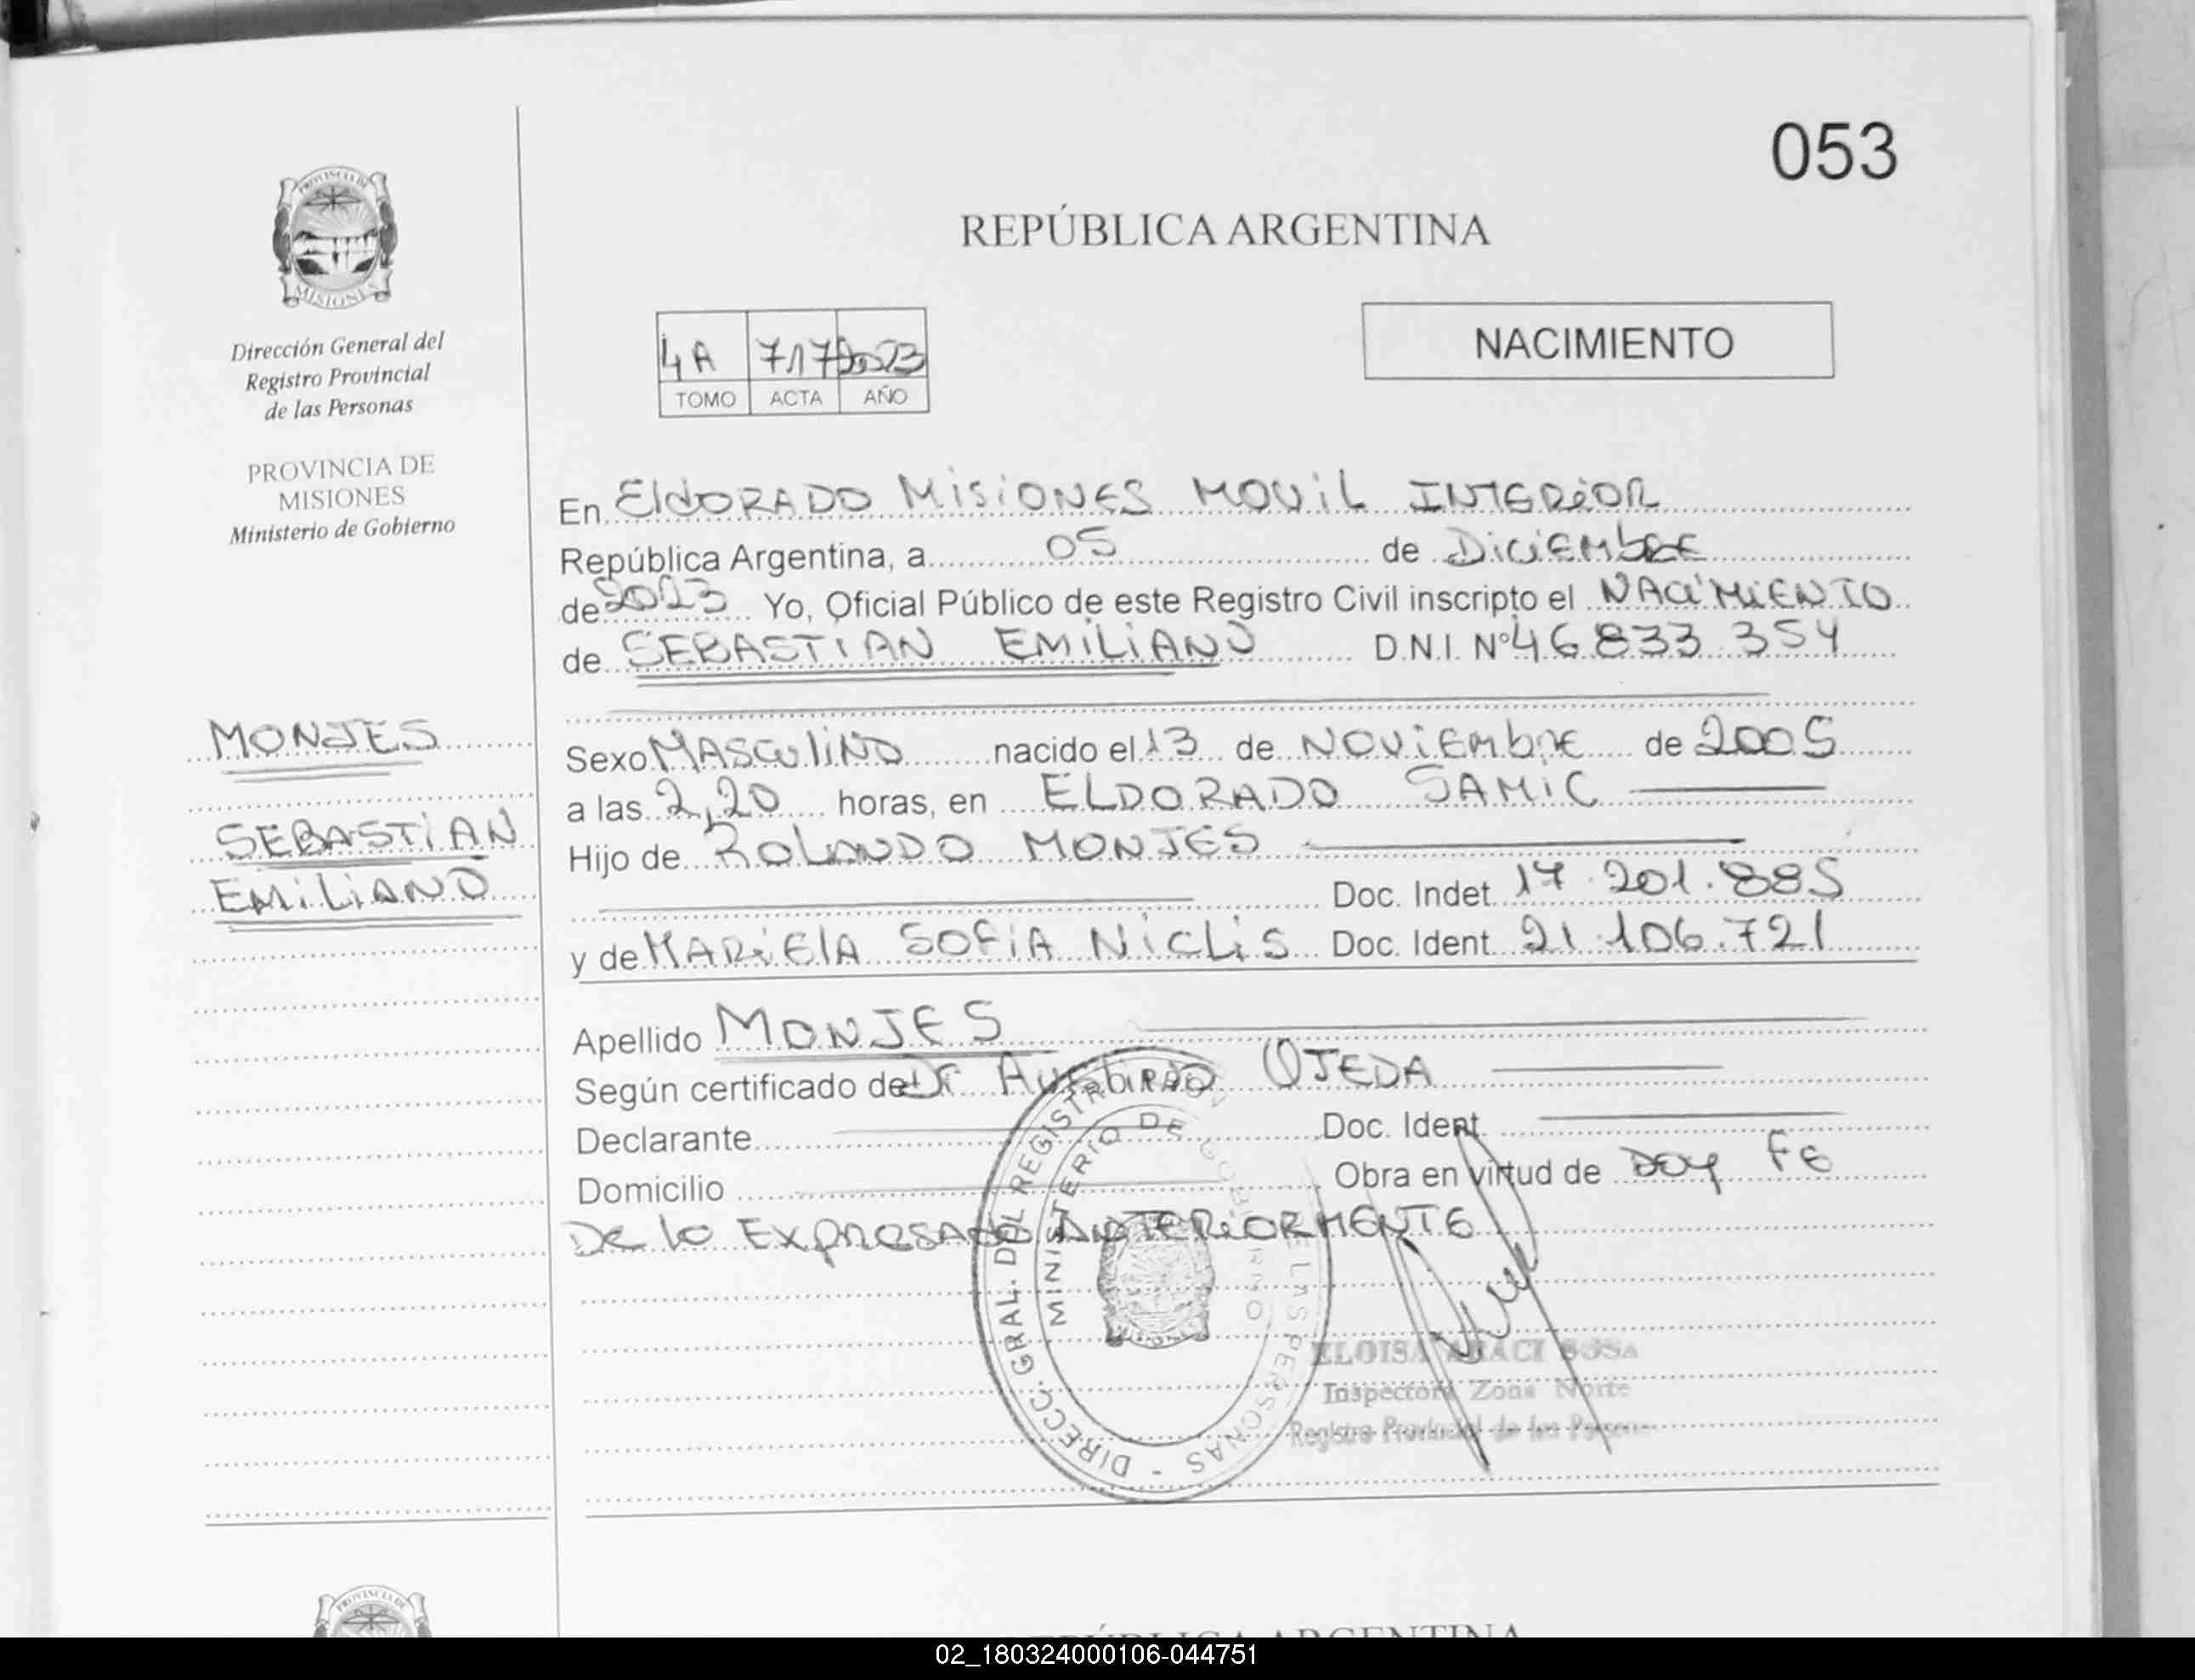 053
PROVINCIA DE
MISIONES
Dirección General del
Registro Provincial
de las Personas
PROVINCIA DE
MISIONES
Ministerio de Gobierno
MONJES
SEBASTIAN
EMILIANO
REPÚBLICA ARGENTINA
NACIMIENTO
4A 717 2023
TOMO ACTA AÑO
En ElDORADO MISIONES MOVIL INTERIOR
República Argentina, a 05 de DICIEMbRE
de 2023 Yo, Oficial Público de este Registro Civil inscripto el NACIMIENTO
de SEBASTIAN EMILIANO D.N.I. Nº 46 833 354
Sexo MASCULINO nacido el 13 de NOVIEMbRE de 2005
a las 2,20 horas, en ELDORADO SAMIC
Hijo de ROLANDO MONJES
Doc. Indet. 17.201.885
y de MARIElA SOFIA NICLIS Doc. Ident. 21.106.721
Apellido MONJES
Según certificado de Dr OJEDA
Declarante Doc. Ident.
Domicilio Obra en virtud de DOY FE
De lo ExpRESADO ANTERIORMENTE
DIRECC. GRAL. DEL REGISTRO DE LAS PERSONAS -
MINISTERIO DE GOBIERNO
MISIONES
ELOISA ARACI SOSA
Inspectora Zona Norte
Registro Provincial de las Personas
PROVINCIA DE
REPÚBLICA ARGENTINA
02_180324000106-044751